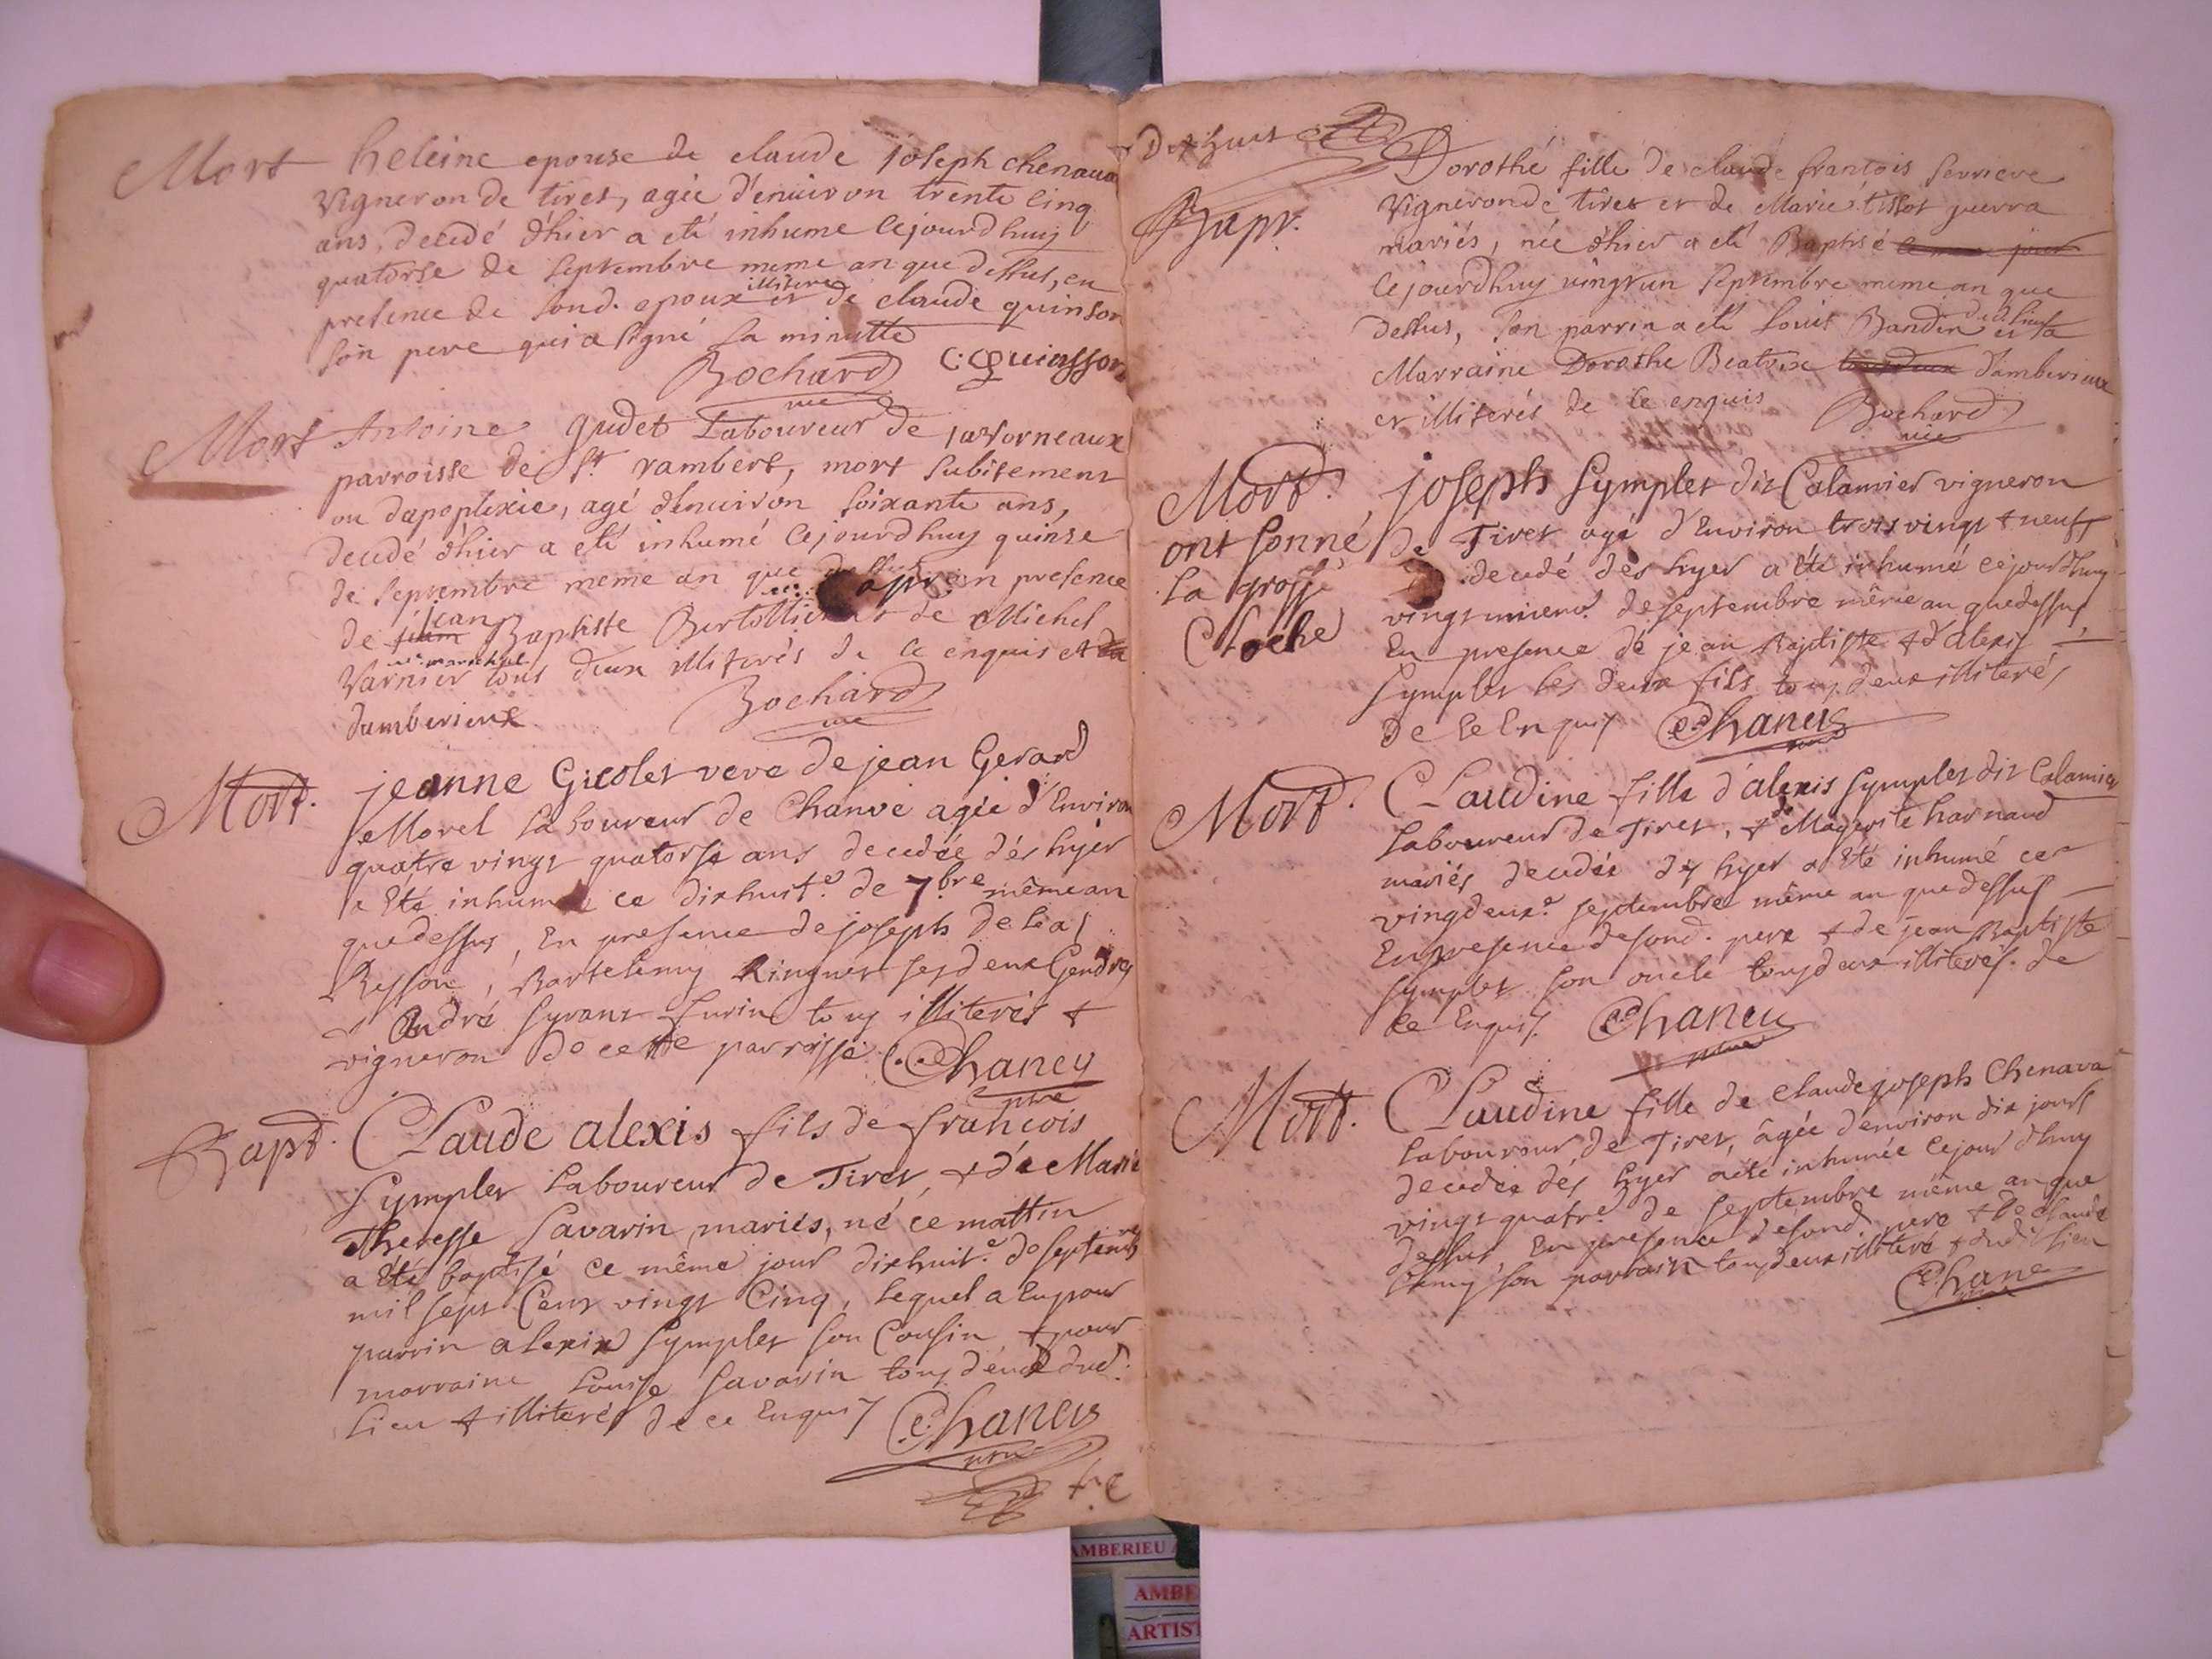 Mort
heleine epouse de claude joseph chenaua
vigneron de tires, agée d'enuiron trente cinq
ans, decedé d'hier a eté inhume cejourdhuy
quatorse de septembre meme an que dessus, en
presence de sond. epoux illiteré et de claude quinson
son pere qui a signé la minutte
Bochard vic C: quinsson
Mort
Antoine gudet Laboureur de
parroisse de st rambert, mort subitement
ou dapoplexie, agé d'enuiron soixante ans,
decedé d'hier a eté inhumé cejourdhuy quinse
de septembre meme an que dessus en presence
de jean Baptiste et de Michel
Varnier marechal tous deux illiterés de ce enquis et
damberieux Bochard vic
Mort.
jeanne Gicolet veve de jean Gerard
Morel Laboureur de Chanve agée d'Environ
quatre vingt quatorse ans decedée dés hyer
a Eté inhumée ce dixhuit.e de 7.bre même an
que dessus, En presence de joseph De Lea
Bartelemy Ringuet ses deux Gendres
André syrant furin tous illiterés &
vigneron de cette parroisse. Chaney
ptre
Bapt.
Claude alexis fils de francois
symplet Laboureur de Tiret, & de Marie
Theresse savarin mariés, né ce mattin
a Eté baptisé ce même jour dixhuit.e de septembre
mil sept Cent vingt Cinq, Lequel a Eu pour
parrin alexix symplet son Cousin & pour
marraine Louise savarin tous deux dud.
Lieu & illiterés de ce Enquis Chaney
ptre
dix huit
Bapt.
Dorothé fille de claude francois serriere
vigneron de tires et de Marie tissot guerra
mariés, née d'hier a eté Baptisé
cejourdhuy vingt un septembre meme an que
dessus, son parrin a eté Louis Bandin dud. lieu et sa
Marraine Dorothe Beatrix d'amberieux
et illiterés de ce enquis Bochard
vic
Mort.
ont sonné
La grosse
Cloche
joseph symplet dit Calamier vigneron
de Tiret agé d'Environ trois vingt & neuf
decedé dés hyer a Eté inhumé cejourdhuy
de septembre même an que dessus
En presence de jean Baptiste & d'alexis
symplet ses deux fils tous deux illiterés
de ce Enquis Chaney
Mort.
Claudine fille d'alexis symplet dit Calamier
Laboureur de Tiret, & de Magerite harnaud
mariés decedée dés hyer a Eté inhumé ce
vingdeux.e septembre même an que dessus
En presence de sond. pere & de jean Baptiste
symplet son oncle tous deux illiterés. de
ce Enquis. Chaney
Mort.
Claudine fille de claude joseph Chenava
Laboureur de Tiret, âgée d'environ dix jours
decedée dés hyer a été inhumée cejourdhuy
vingt quatr.e de septembre même an que
dessus En presence de sond. pere & de claude
son parrain tous deux illiteré & dudit lieu
Chane
AMBERIEU
AMBE
ARTIST